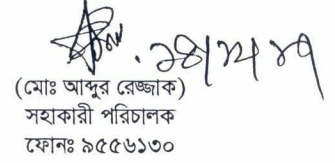 (মোঃ আব্দুর রেজ্জাক)
সহাকারী পরিচালক
ফোনঃ ৯৫৫৬১৩০